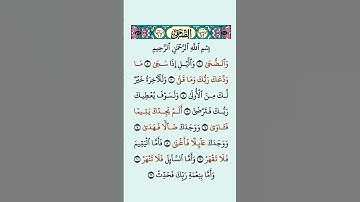 الضحى
بِسْمِ ٱللَّهِ ٱلرَّحْمَٰنِ ٱلرَّحِيمِ
وَٱلضُّحَىٰ ۝ وَٱلَّيْلِ إِذَا سَجَىٰ ۝ مَا
وَدَّعَكَ رَبُّكَ وَمَا قَلَىٰ ۝ وَلَلْءَاخِرَةُ خَيْرٌ
لَّكَ مِنَ ٱلْأُولَىٰ ۝ وَلَسَوْفَ يُعْطِيكَ
رَبُّكَ فَتَرْضَىٰٓ ۝ أَلَمْ يَجِدْكَ يَتِيمًا
فَـَٔاوَىٰ ۝ وَوَجَدَكَ ضَآلًّا فَهَدَىٰ ۝
وَوَجَدَكَ عَآئِلًا فَأَغْنَىٰ ۝ فَأَمَّا ٱلْيَتِيمَ
فَلَا تَقْهَرْ ۝ وَأَمَّا ٱلسَّآئِلَ فَلَا تَنْهَرْ ۝
وَأَمَّا بِنِعْمَةِ رَبِّكَ فَحَدِّثْ ۝